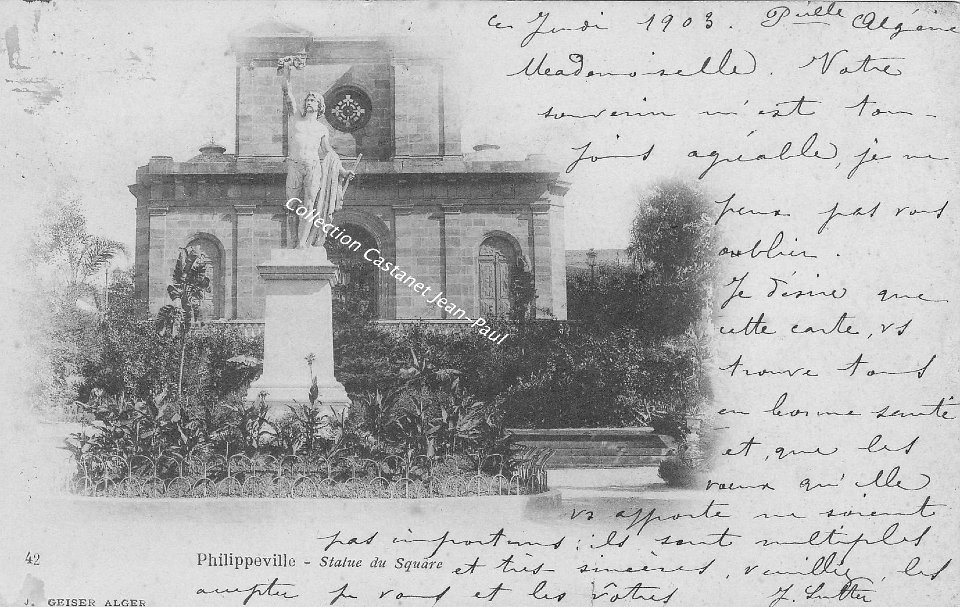 ce Jeudi 1903. Pville Algérie
Mademoiselle. Votre
souvenir m'est tou-
jours agréable, je ne
peux pas vous
oublier.
Je désire que
cette carte, vs
trouve tous
en bonne santé
et, que les
voeux qu'elle
vs apporte ne soient
pas importuns; ils sont multiples
et très sincères, veuillez, les
accepter pr vous et les vôtres
J. Sutter
Collection Castanet Jean-Paul
42
Philippeville - Statue du Square
J. GEISER ALGER